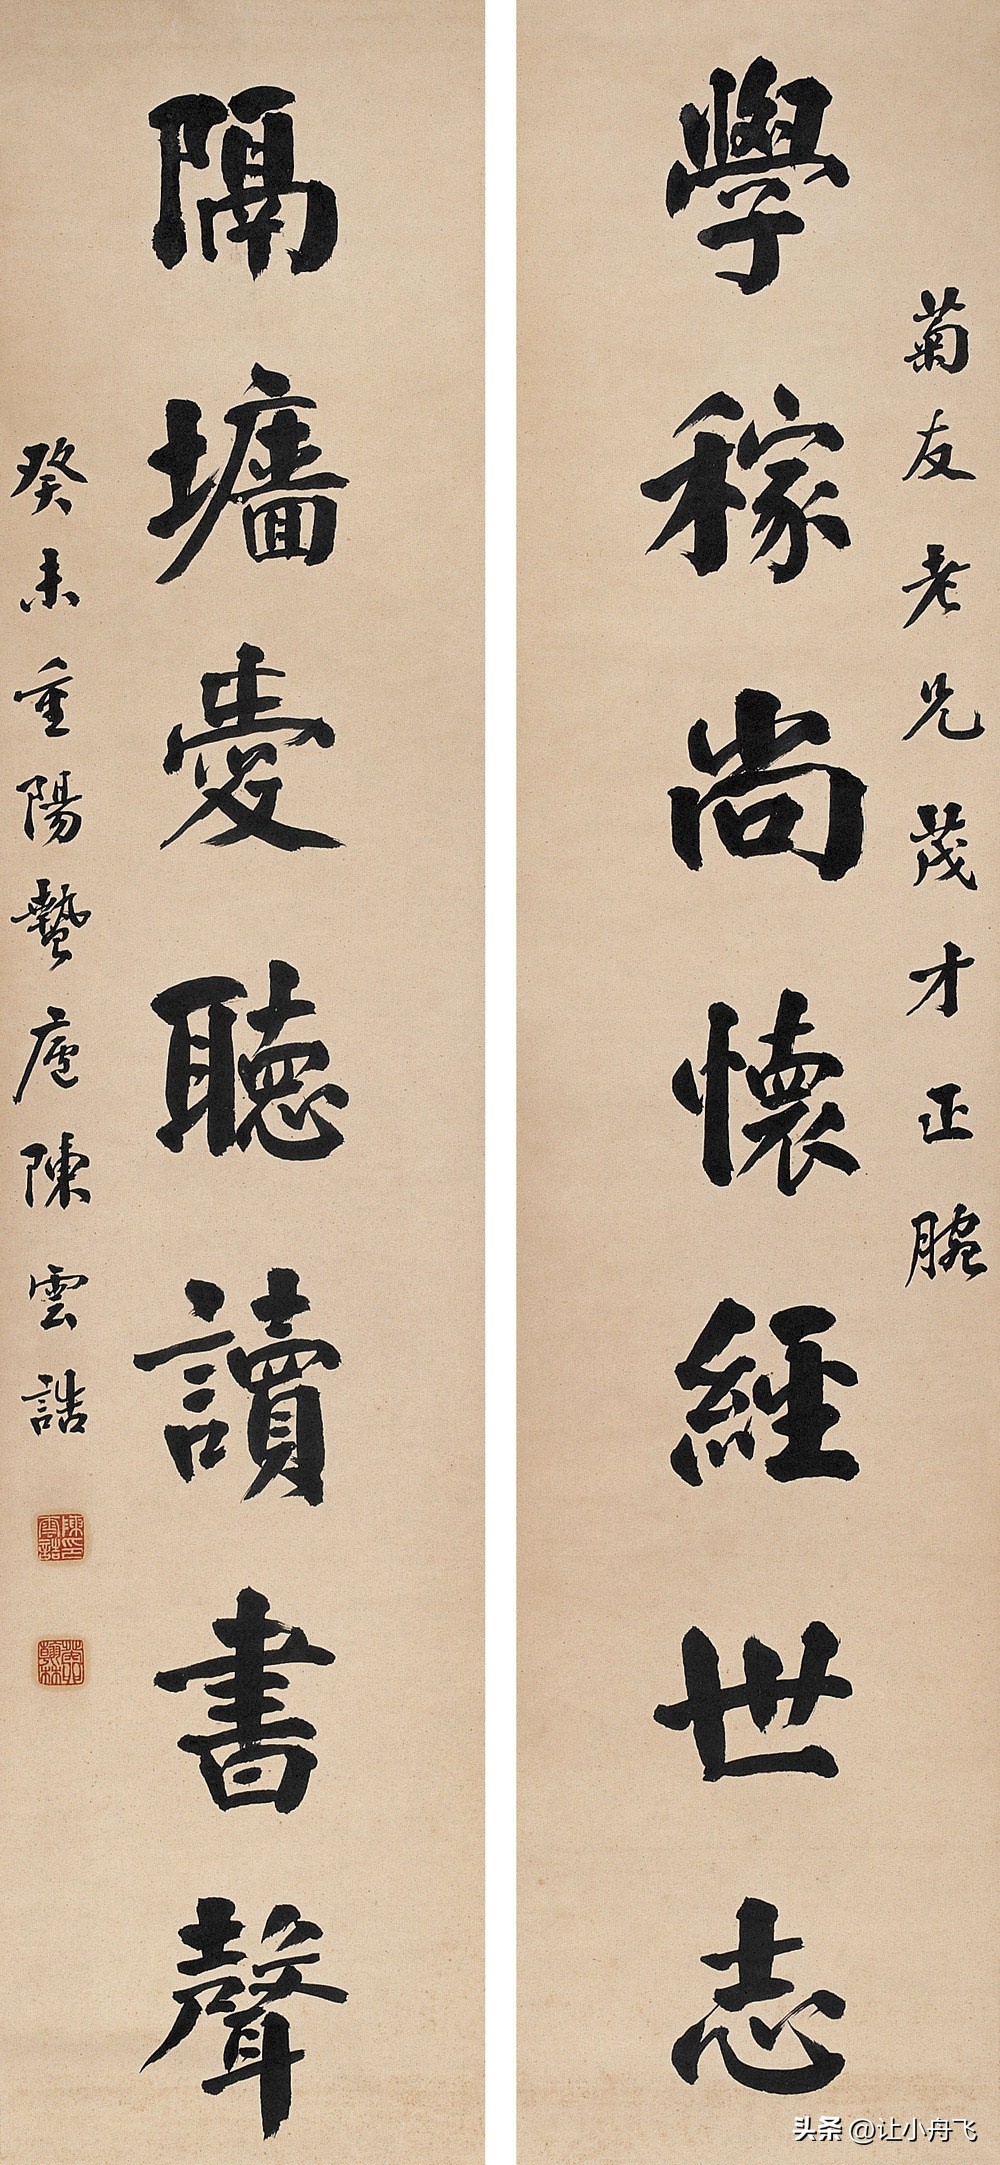 菊友老兄茂才正腕
學稼尚懷經世志
隔墻愛聽讀書聲
癸未重陽蟄廬陳雲誥
頭条 @让小舟飞